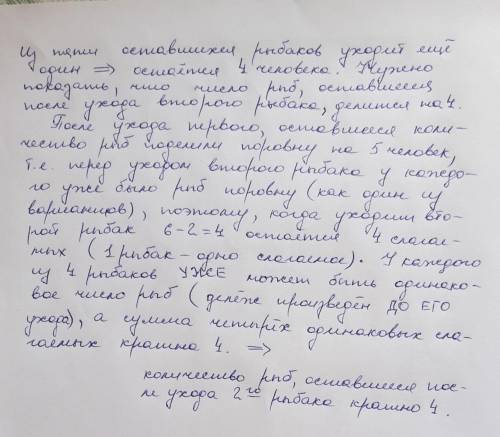 Из пяти оставшихся рыбаков уходит ещё
один => остаётся 4 человека. Нужно
показать, что число рыб, оставшееся
после ухода второго рыбака, делится на 4.
После ухода первого, оставшееся коли-
чество рыб поделили поровну на 5 человек,
т.е. перед уходом второго рыбака у каждо-
го уже было рыб поровну (как один из
вариантов), поэтому, когда уходит вто-
рой рыбак 6-2=4 остаётся 4 слагае-
мых (1 рыбак - одно слагаемое). У каждого
из 4 рыбаков УЖЕ может быть одинако-
вое число рыб (делёж произведён ДО ЕГО
ухода), а сумма четырёх одинаковых сла-
гаемых кратна 4. =>
количество рыб, оставшееся пос-
ле ухода 2го рыбака кратно 4.